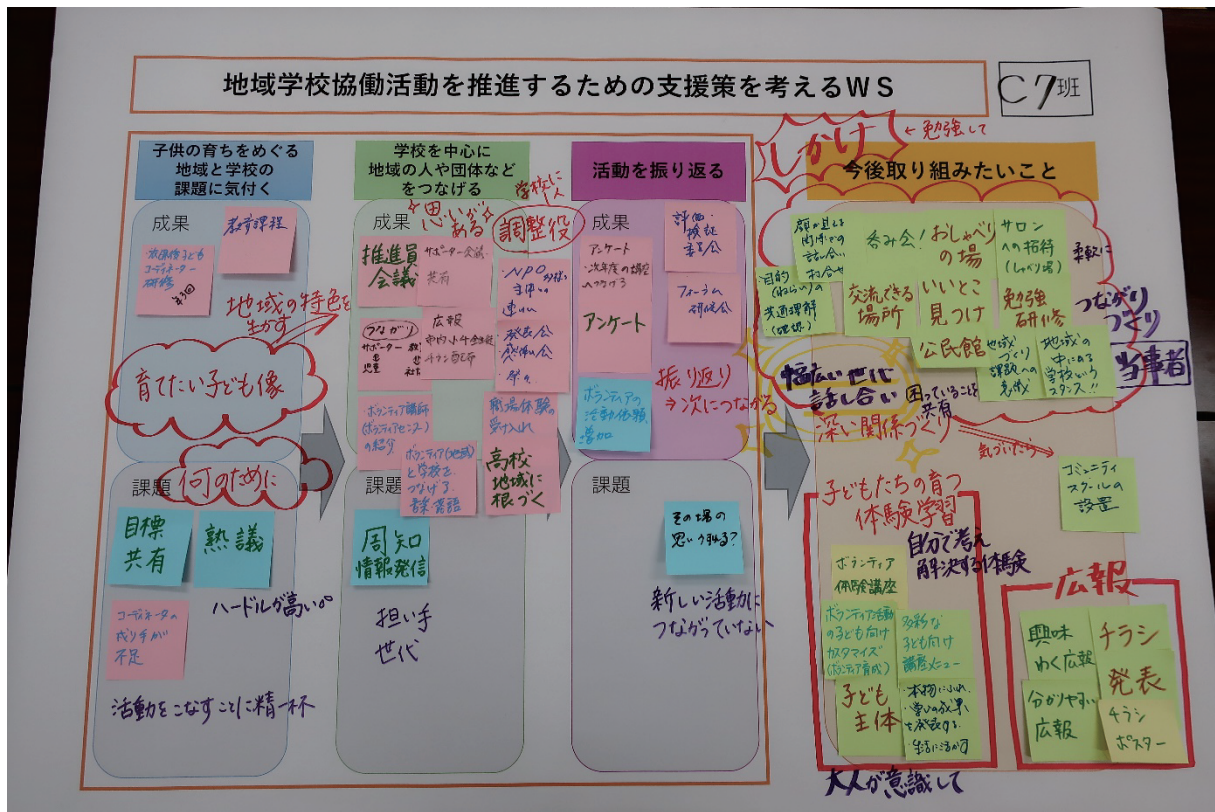 地域学校協働活動を推進するための支援策を考えるWS
C7班
子供の育ちをめぐる
地域と学校の
課題に気付く
成果
放課後子ども
コーディネーター
研修
教育課程
地域の特色を
生かす
育てたい子ども像
課題
何のために
目標
共有
熟議
ハードルが高い。
コーディネータの
成り手が
不足
活動をこなすことに精一杯
学校を中心に
地域の人や団体など
をつなげる
成果
思いが
ある
学校に
人
調整役
推進員
会議
サポーター会議
共有
・NPO
主体の
連携
・発表会
・体験会
・祭り
つながり
サポーター
児童
広報
市内小中全家庭
チラシ配布
・ボランティア講師
(ボランティアセンター)
の紹介
ボランティア(地域)
と学校を
つなげる
音楽・落語
職場体験の
受け入れ
高校
地域に
根づく
課題
周知
情報発信
担い手
世代
活動を振り返る
成果
アンケート
・次年度の講座
へつなげる
評価・
検証
委員会
アンケート
フォーラム
研修会
ボランティアの
活動依頼
増加
振り返り
⇒次につながる
課題
その場の
思い付きる?
新しい活動に
つながっていない
しかけ
←勉強して
今後取り組みたいこと
顔が見える
関係での
話し合い
打合せ
呑み会!
おしゃべり
の場
サロン
への招待
(しゃべり場)
柔軟に
目的
(ねらい)の
共通理解
(確認)
交流できる
場所
いいとこ
見つけ
勉強
研修
つながり
づくり
公民館
地域づくり
課題への
意識
地域の
中にある
学校という
スタンス!!
当事者
幅広い世代
話し合い
困っていることを
共有
深い関係づくり
気づいたら
コミュニティ
スクールの
設置
子どもたちの育つ
体験学習
自分で考え
解決する体験
ボランティア
体験講座
ボランティア活動
の子ども向け
カスタマイズ
(ボランティア育成)
多彩な
子ども向け
講座メニュー
子ども
主体
・本物にふれ、
・学びの成果
を発表する
・生活に活かす
大人が意識して
広報
興味
わく広報
チラシ
発表
分かりやすい
広報
チラシ
ポスター